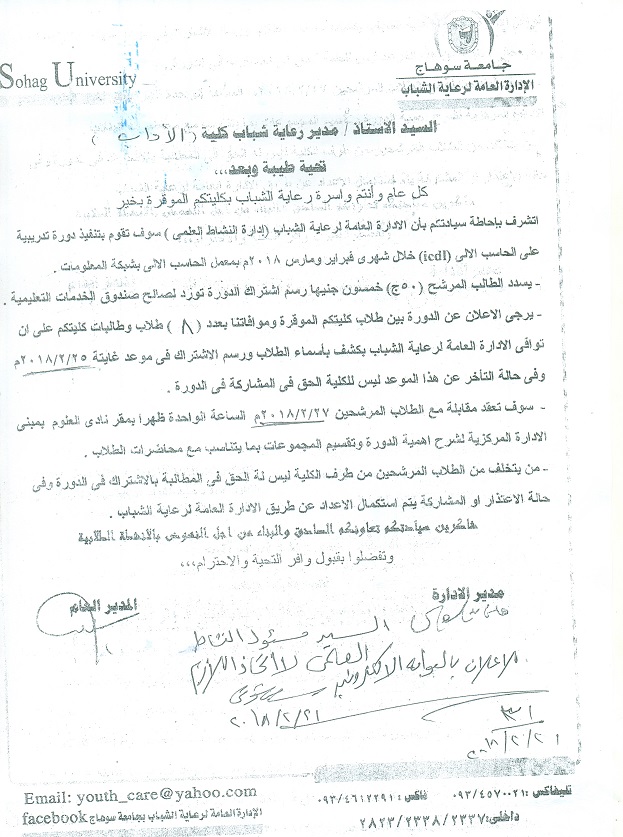 جامعة سوهاج
الإدارة العامة لرعاية الشباب
Sohag University
السيد الاستاذ / مدير رعاية شباب كلية ( الآداب )
تحية طيبة وبعد،،،
كل عام وأنتم واسرة رعاية الشباب بكليتكم الموقرة بخير
اتشرف بإحاطة سيادتكم بأن الادارة العامة لرعاية الشباب (إدارة النشاط العلمى ) سوف تقوم بتنفيذ دورة تدريبية
على الحاسب الالى (icdl) خلال شهرى فبراير ومارس ٢٠١٨م بمعمل الحاسب الالى بشبكة المعلومات .
- يسدد الطالب المرشح (٥٠ج) خمسون جنيها رسم اشتراك الدورة تورد لصالح صندوق الخدمات التعليمية .
- يرجى الاعلان عن الدورة بين طلاب كليتكم الموقرة وموافاتنا بعدد ( ٨ ) طلاب وطالبات كليتكم على ان
توافى الادارة العامة لرعاية الشباب بكشف بأسماء الطلاب ورسم الاشتراك فى موعد غايتة ٢٠١٨/٢/٢٥م
وفى حالة التأخر عن هذا الموعد ليس للكلية الحق فى المشاركة فى الدورة .
- سوف تعقد مقابلة مع الطلاب المرشحين ٢٠١٨/٢/٢٧م الساعة الواحدة ظهرا بمقر نادى العلوم بمبنى
الادارة المركزية لشرح اهمية الدورة وتقسيم المجموعات بما يتناسب مع محاضرات الطلاب .
- من يتخلف من الطلاب المرشحين من طرف الكلية ليس لة الحق فى المطالبة بالاشتراك فى الدورة وفى
حالة الاعتذار او المشاركة يتم استكمال الاعداد عن طريق الادارة العامة لرعاية الشباب .
شاكرين سيادتكم تعاونكم الصادق والبناء من اجل النهوض بالانشطة الطلابية
وتفضلوا بقبول وافر التحية والاحترام،،،
مدير الادارة
المدير العام
السيد مسئول النشاط
العلمى لاتخاذ اللازم
للاعلان بالبوابة الالكترونية
٢٠١٨/٢/٢١
Email: youth_care@yahoo.com
facebook الإدارة العامة لرعاية الشباب بجامعة سوهاج
تليفاكس : ٠٩٣/٤٥٧٠٠٢١ فاكس : ٠٩٣/٤٦١٢٢٩١
داخلى: ٢٨٢٣/٢٣٣٨/٢٣٣٧